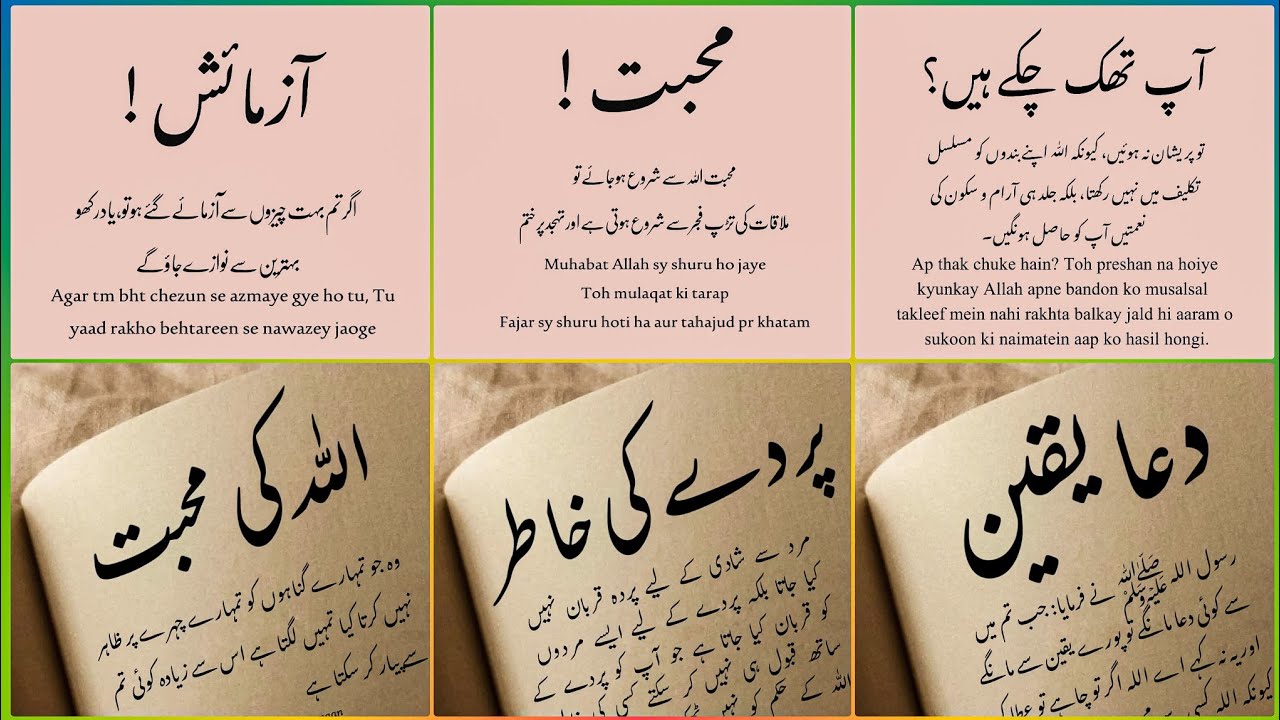 آزمائش !
اگر تم بہت چیزوں سے آزمائے گئے ہو تو، یاد رکھو
بہترین سے نوازے جاؤ گے
Agar tm bht chezun se azmaye gye ho tu, Tu
yaad rakho behtareen se nawazey jaoge
محبت !
محبت اللہ سے شروع ہو جائے تو
ملاقات کی تڑپ فجر سے شروع ہوتی ہے اور تہجد پر ختم
Muhabat Allah sy shuru ho jaye
Toh mulaqat ki tarap
Fajar sy shuru hoti ha aur tahajud pr khatam
آپ تھک چکے ہیں؟
تو پریشان نہ ہوئیں، کیونکہ اللہ اپنے بندوں کو مسلسل
تکلیف میں نہیں رکھتا، بلکہ جلد ہی آرام و سکون کی
نعمتیں آپ کو حاصل ہونگیں۔
Ap thak chuke hain? Toh preshan na hoiye
kyunkay Allah apne bandon ko musalsal
takleef mein nahi rakhta balkay jald hi aaram o
sukoon ki naimatein aap ko hasil hongi.
اللہ کی محبت
وہ جو تمہارے گناہوں کو تمہارے چہرے پر ظاہر
نہیں کرتا کیا تمہیں لگتا ہے اس سے زیادہ کوئی تم
سے پیار کر سکتا ہے
پردے کی خاطر
مرد سے شادی کے لیے پردہ قربان نہیں
کیا جاتا بلکہ پردے کے لیے ایسے مردوں
کو قربان کیا جاتا ہے جو آپ کو پردے کے
ساتھ قبول ہی نہیں کر سکتے کسی کی خاطر
اللہ کے حکم کو نہیں
دعا یقین
رسول اللہ ﷺ نے فرمایا: جب تم میں
سے کوئی دعا مانگے تو پورے یقین سے مانگے
اور یہ نہ کہے اے اللہ اگر تو چاہے تو عطا کر
کیونکہ اللہ کسی